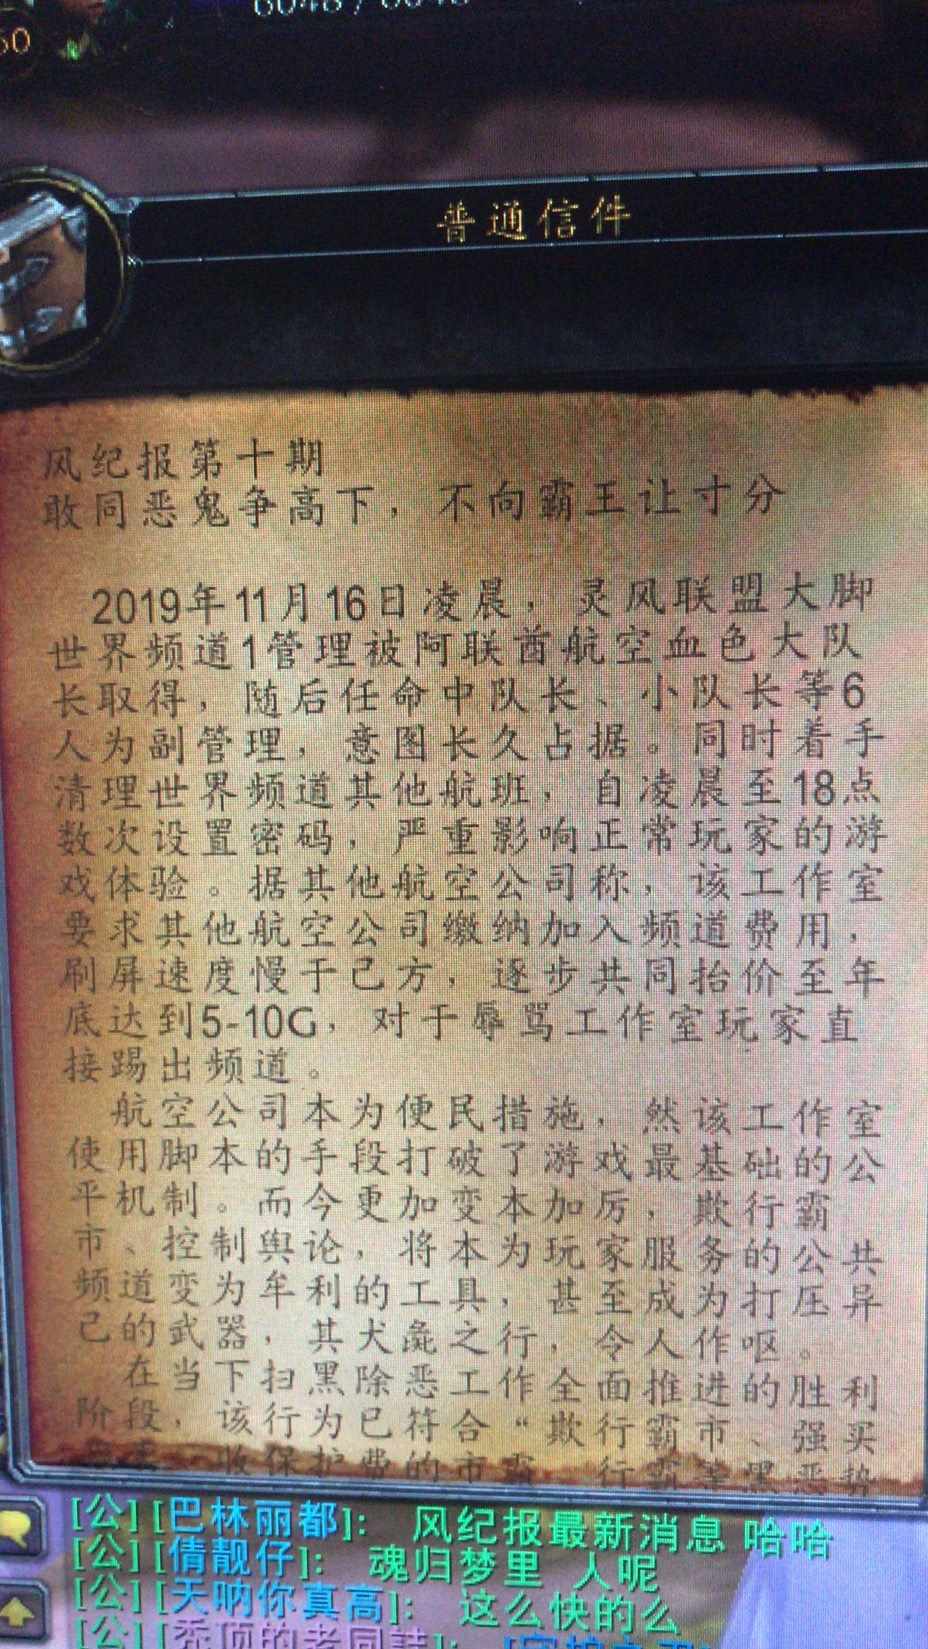 普通信件
风纪报第十期
敢同恶鬼争高下，不向霸王让寸分
2019年11月16日凌晨，灵风联盟大脚
世界频道1管理被阿联酋航空血色大队
长取得，随后任命中队长、小队长等6
人为副管理，意图长久占据。同时着手
清理世界频道其他航班，自凌晨至18点
数次设置密码，严重影响正常玩家的游
戏体验。据其他航空公司称，该工作室
要求其他航空公司缴纳加入频道费用，
刷屏速度慢于己方，逐步共同抬价至年
底达到5-10G，对于辱骂工作室玩家直
接踢出频道。
航空公司本为便民措施，然该工作室
使用脚本的手段打破了游戏最基础的公
平机制。而今更加变本加厉，欺行霸
市、控制舆论，将本为玩家服务的公共
频道变为牟利的工具，甚至成为打压异
己的武器，其犬彘之行，令人作呕。
在当下扫黑除恶工作全面推进的胜利
阶段，该行为已符合“欺行霸市、强买
收保护费的市霸 行霸等黑恶势
[公][巴林丽都]: 风纪报最新消息 哈哈
[公][倩靓仔]: 魂归梦里 人呢
[公][天呐你真高]: 这么快的么
[公][秃顶的老同誌]: